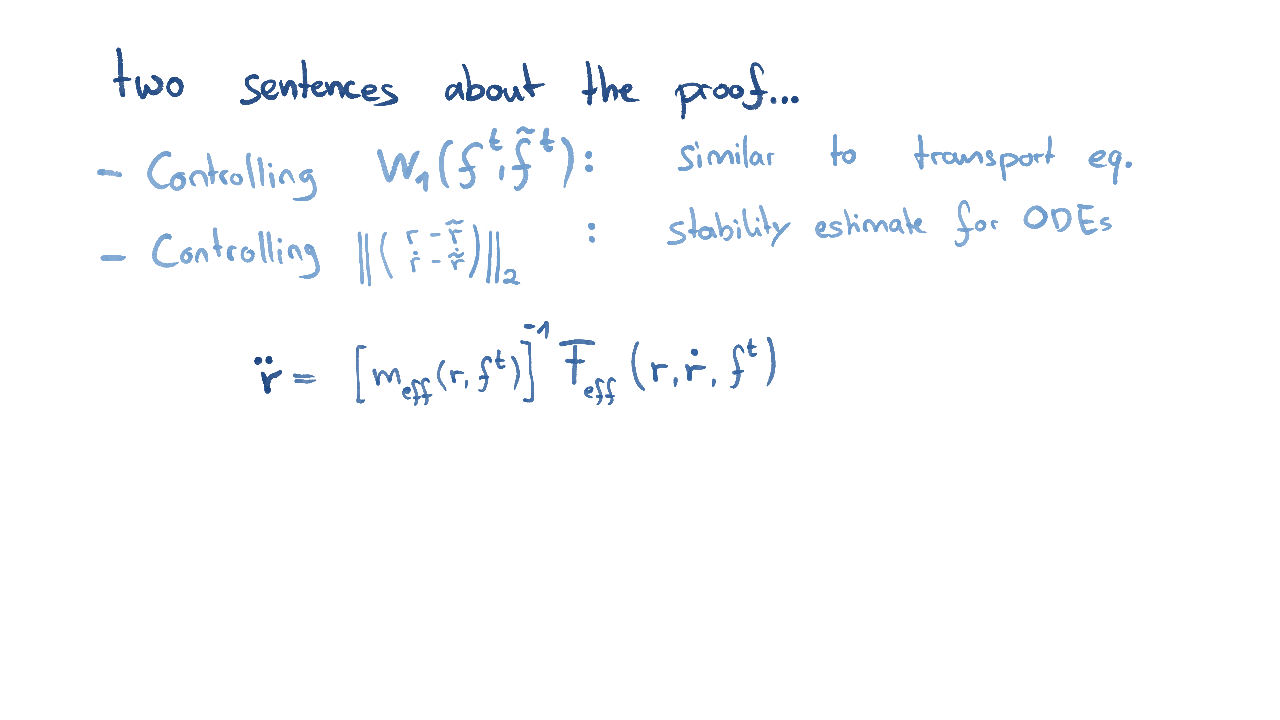 two sentences about the proof...
- Controlling W₁(fᵗ, f̃ᵗ): similar to transport eq.
- Controlling ‖(r - r̃ ṙ - ṙ̃)‖₂ : stability estimate for ODEs
r̈ = [m_eff(r, fᵗ)]⁻¹ F̅_eff (r, ṙ, fᵗ)